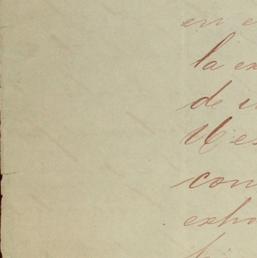 en e
la ex
de u
U es
con
exho